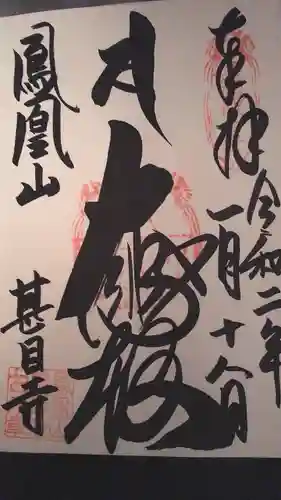 奉拝
令和二年
一月十八日
大悲殿
鳳凰山
甚目寺